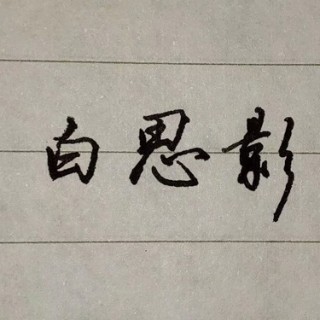 白思影